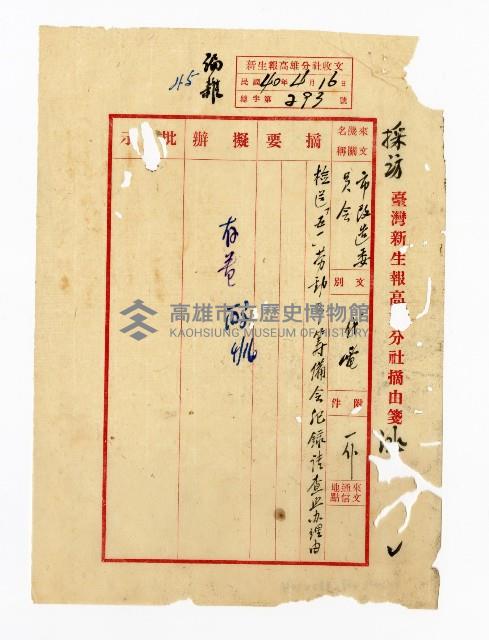 新生報高雄分社收文
民國40年4月16日
總字第293號
編輯
45
採訪
臺灣新生報高 分社摘由箋
來文機關名稱
市改造委員會
文別
代電
附件
一件
來文通信地點
摘要
檢送「五一」勞動 籌備會紀錄請查照办理由
擬辦
存卷
4/16
批示
高雄市立歷史博物館
KAOHSIUNG MUSEUM OF HISTORY